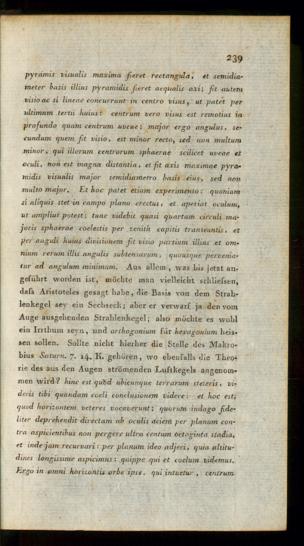 239
pyramis visualis maxima fieret rectangula, et semidia-
meter basis illius pyramidis fieret aequalis axi; fit autem
visio ac si lineae concurrant in centro visus, ut patet per
ultimam tertii huius: centrum vero visus est remotius in
profundo quam centrum uveae; major ergo angulus, se-
cundum quem fit visio, est minor recto, sed non multum
minor, qui illorum centrorum sphaerae scilicet uveae et
oculi, non est magna distantia, et fit axis maximae pyra-
midis visualis major semidiametro basis eius, sed non
multo major. Et hoc patet etiam experimento: quoniam
si aliquis stet in campo plano erectus, et aperiat oculum,
ut amplius potest; tunc videbit quasi quartam circuli ma-
joris sphaerae coelestis per zenith capitis transeuntis, et
per anguli huius divisionem fit visio partium illius et om-
nium rerum illis angulis subtensarum, quousque pervenia-
tur ad angulum minimum. Aus allem, was bis jetzt an-
geführt worden ist, möchte man vielleicht schliefsen,
dafs Aristoteles gesagt habe, die Basis von dem Strah-
lenkegel sey ein Sechseck; aber er verwarf ja den vom
Auge ausgehenden Strahlenkegel; also möchte es wohl
ein Irrthum seyn, und orthogonium für hexagonium heis-
sen sollen. Sollte nicht hierher die Stelle des Makro-
bius Saturn. 7. 14. K. gehören, wo ebenfalls die Theo-
rie des aus den Augen strömenden Luftkegels angenom-
men wird? hinc est quod ubicunque terrarum steteris, vi-
deris tibi quandam coeli conclusionem videre: et hoc est,
quod horizontem veteres vocaverunt; quorum indago fide-
liter deprehendit directam ab oculis aciem per planum con-
tra aspicientibus non pergere ultra centum octoginta stadia,
et inde jam recurvari: per planum ideo adjeci, quia altitu-
dines longissime aspicimus: quippe qui et coelum videmus.
Ergo in omni horizontis orbe ipse, qui intuetur, centrum